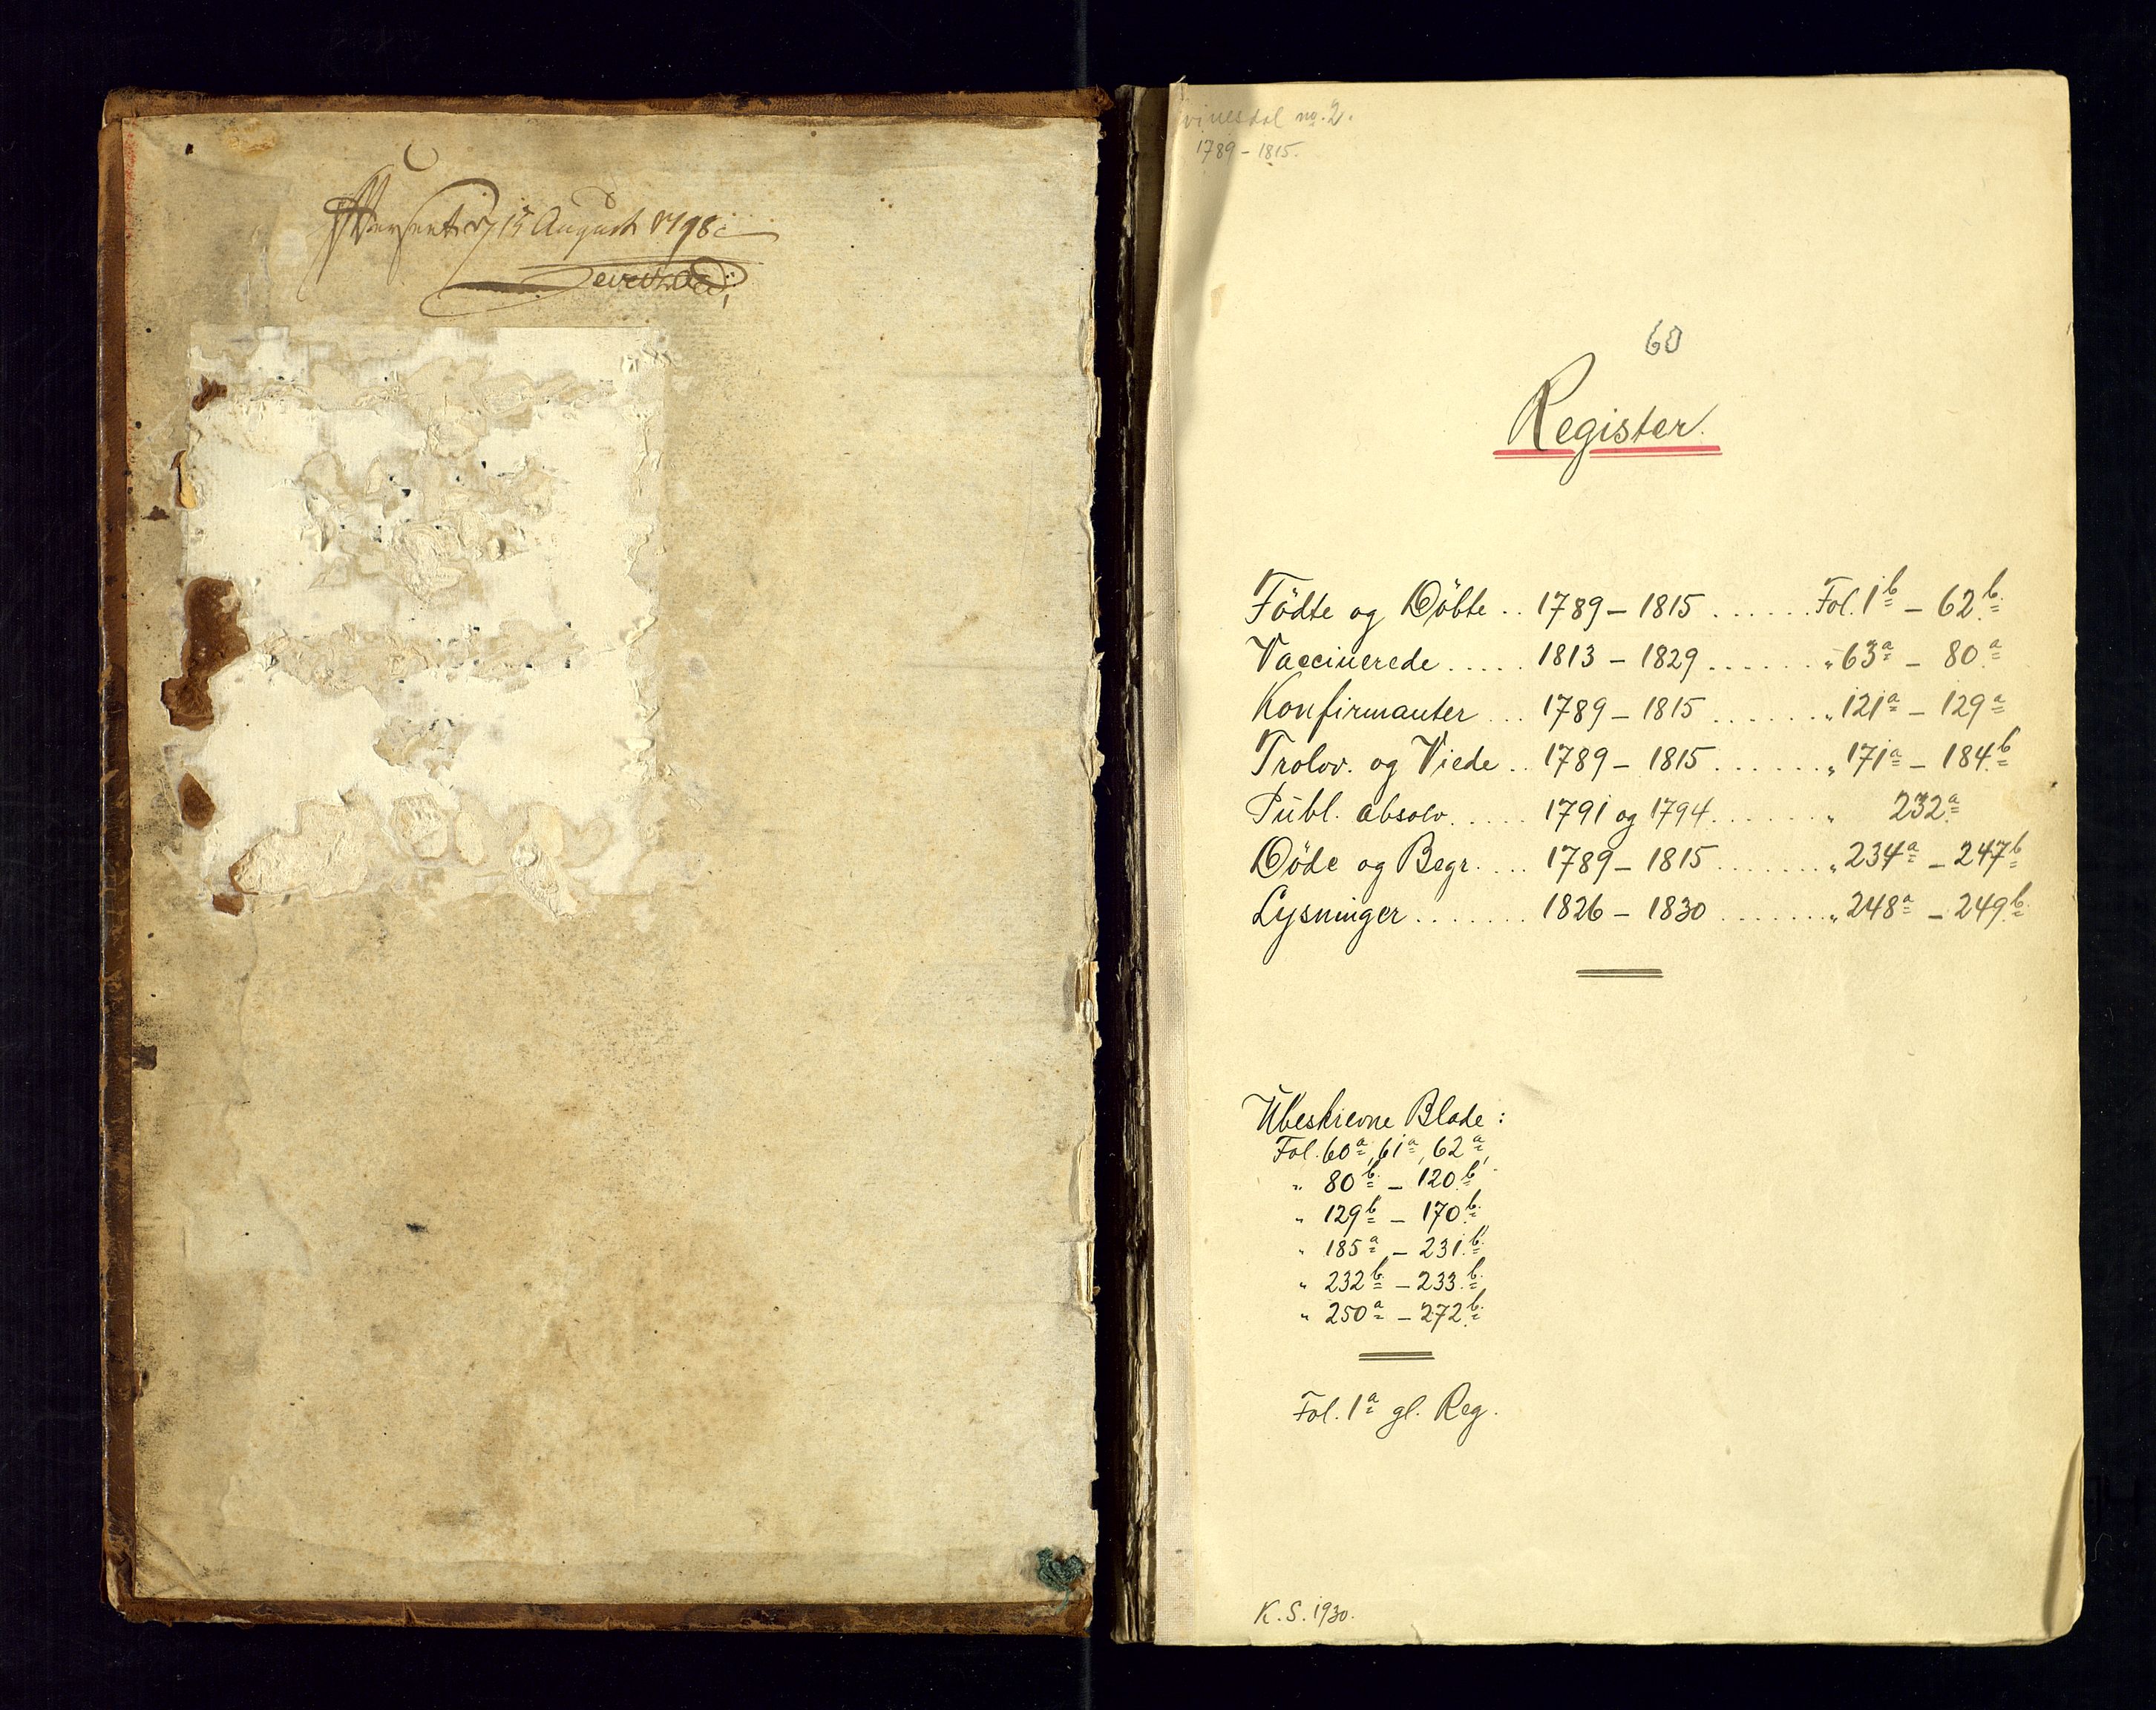 15 August 1798
vinesdal no. 2.
1789 – 1815.
60
Register.
Födte og Döbte .. 1789 – 1815 ...... Fol. 1b – 62b.
Vaccinerede ..... 1813 – 1829 ....... " 63a – 80a
Konfirmanter ... 1789 – 1815 ....... " 121a – 129a
Trolov. og Viede .. 1789 – 1815 ....... " 171a – 184b
Publ. absolv. ..... 1791 og 1794 ....... " 232a
Döde og Begr. ... 1789 – 1815 ....... " 234a – 247b
Lysninger ....... 1826 – 1830 ....... " 248a – 249b.
Ubeskrevne Blade :
Fol. 60a, 61a, 62a,
" 80b – 120b
" 129b – 170b
" 185a – 231b
" 232b – 233b
" 250a – 272b
Fol. 1a gl. Reg.
K. S. 1930.